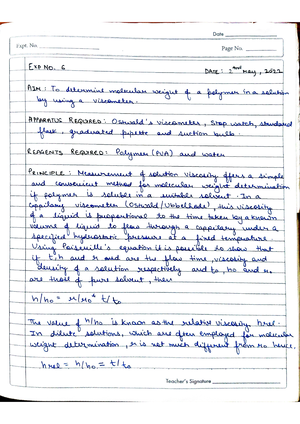 Date
Expt. No.
Page No.
EXP NO. 6
DATE: 2nd May, 2022
AIM: To determine molecular weight of a polymer in a solution
by using a viscometer.
APPARATUS REQUIRED: Oswald's viscometer, Stop watch, standard
flask, graduated pipette and suction bulb.
REAGENTS REQUIRED: Polymer (PVA) and water
PRINCIPLE: Measurement of solution viscosity offers a simple
and convenient method for molecular weight determination
if polymer is soluble in a suitable solvent. In a
capillary viscometer (Oswald/Ubbelhode) this viscosity
of a liquid is proportional to the time taken by a known
volume of liquid to flow through a capillary under a
specified hydrostatic pressure at a fixed temperature
Using Poiseuille's equation it is possible to show that
if t, h and r and are the flow time, viscosity and
density of a solution respectively and to, ho and ro
are those of pure solvent, then
h/ho = r/ro * t/to
The value of h/ho is known as the relative viscosity hrel.
In dilute solutions, which are often employed for molecular
weight determination, r is not much different from ro hence,
hrel = h/ho = t/to
Teacher's Signature